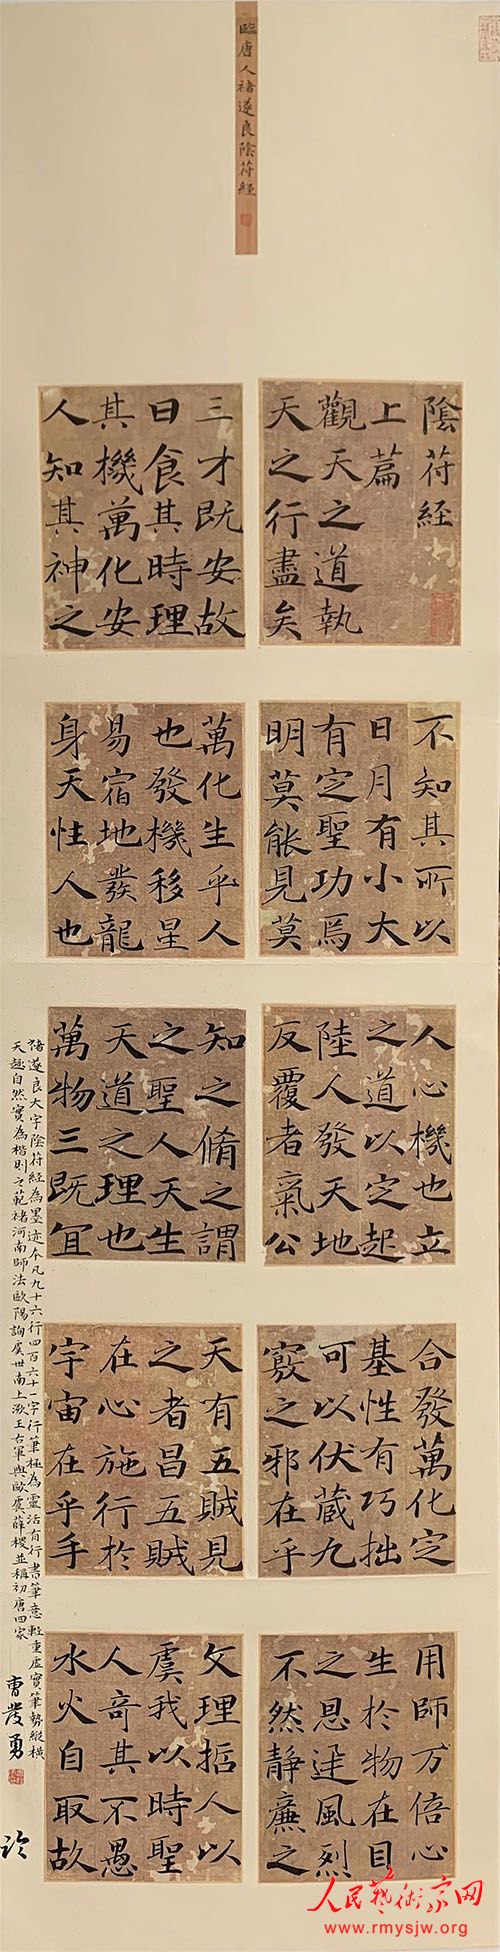 臨唐人褚遂良陰苻經
陰苻經
上篇
觀天之道執
天之行盡矣
三才既安故
曰食其時理
其機萬化安
人知其神之
不知其所以
日月有小大
有定聖功焉
明莫能見莫
萬化生乎人
也發機移星
易宿地發龍
身天性人也
人心機也立
之道以定起
陸人發天地
反覆者氣公
知之脩之謂
之聖人天生
天道之理也
萬物三既宜
合發萬化定
基性有巧拙
可以伏藏九
竅之邪在乎
天有五賊見
之者昌五賊
在心施行於
宇宙在乎手
用師万倍心
生於物在目
之恩迅風烈
不然靜廉之
文理哲人以
虞我以時聖
人奇其不愚
水火自取故
褚遂良大字陰苻經為墨迹本凡九十六行四百六十一字行筆極為靈活有行書筆意輕重虛實筆勢縱橫
天趣自然實為楷則之範褚河南師法歐陽詢虞世南上溯王右軍與歐虞薛稷並稱初唐四家
曹發勇
人民藝術家网
www.rmysjw.org